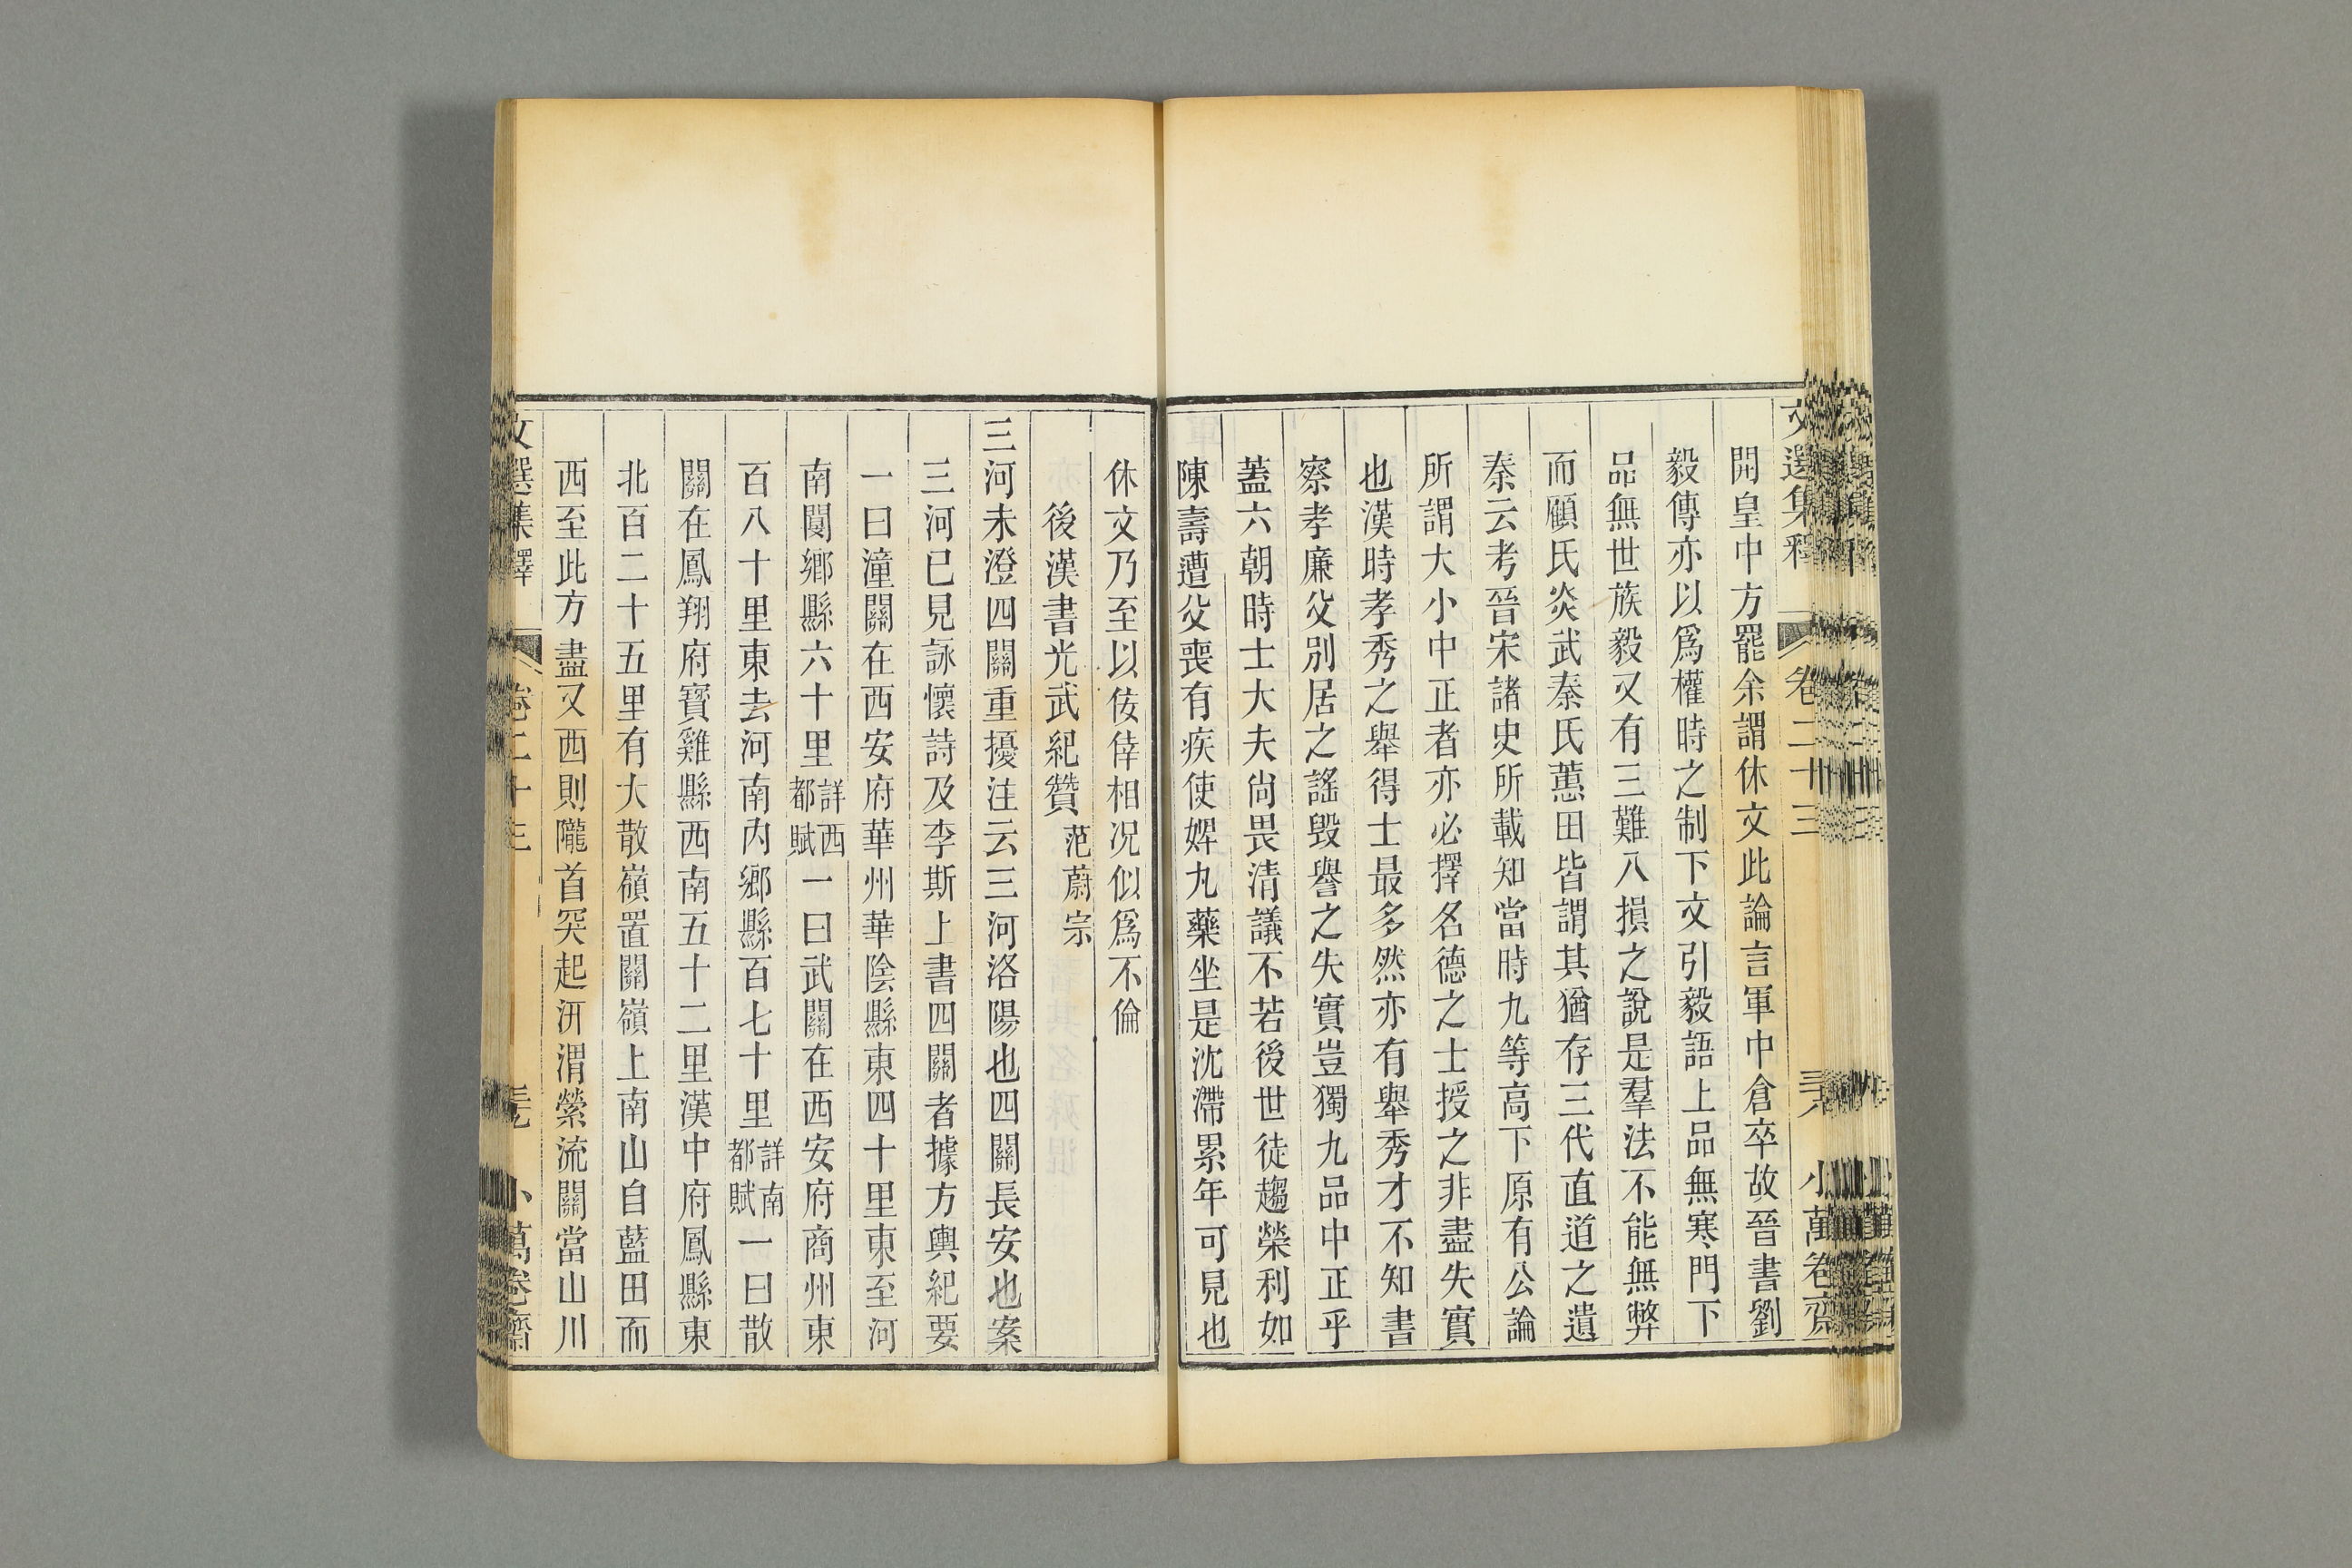 文選集釋 卷二十三 小萬卷齋
開皇中方罷余謂休文此論言軍中倉卒故晉書劉
毅傳亦以爲權時之制下文引毅語上品無寒門下
品無世族毅又有三難八損之說是羣法不能無弊
而顧氏炎武秦氏蕙田皆謂其猶存三代直道之遺
秦云考晉宋諸史所載知當時九等高下原有公論
所謂大小中正者亦必擇名德之士授之非盡失實
也漢時孝秀之舉得士最多然亦有舉秀才不知書
察孝廉父別居之謠毀譽之失實豈獨九品中正乎
蓋六朝時士大夫尙畏清議不若後世徒趨榮利如
陳壽遭父喪有疾使婢丸藥坐是沈滯累年可見也
休文乃至以俊倖相况似爲不倫
後漢書光武紀贊 范蔚宗
三河未澄四關重擾注云三河洛陽也四關長安也案
三河已見詠懷詩及李斯上書四關者據方輿紀要
一曰潼關在西安府華州華陰縣東四十里東至河
南閿鄉縣六十里詳西都賦一曰武關在西安府商州東
百八十里東去河南內鄉縣百七十里詳南都賦一曰散
關在鳳翔府寶雞縣西南五十二里漢中府鳳縣東
北百二十五里有大散嶺置關嶺上南山自藍田而
西至此方盡又西則隴首突起汧渭縈流關當山川
文選集釋 卷二十三 小萬卷齋